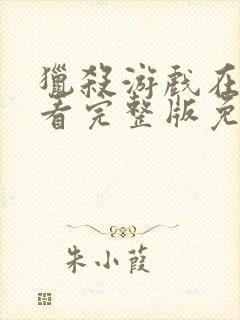 獵殺游戲在
看完整版免
朱小葭